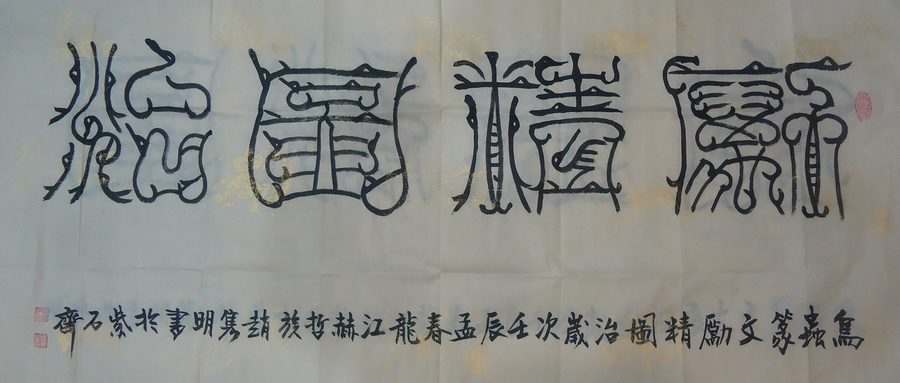 勵精圖治
鳥蟲篆文勵精圖治歲次壬辰孟春龍江赫哲族趙雋明書於紫石齋